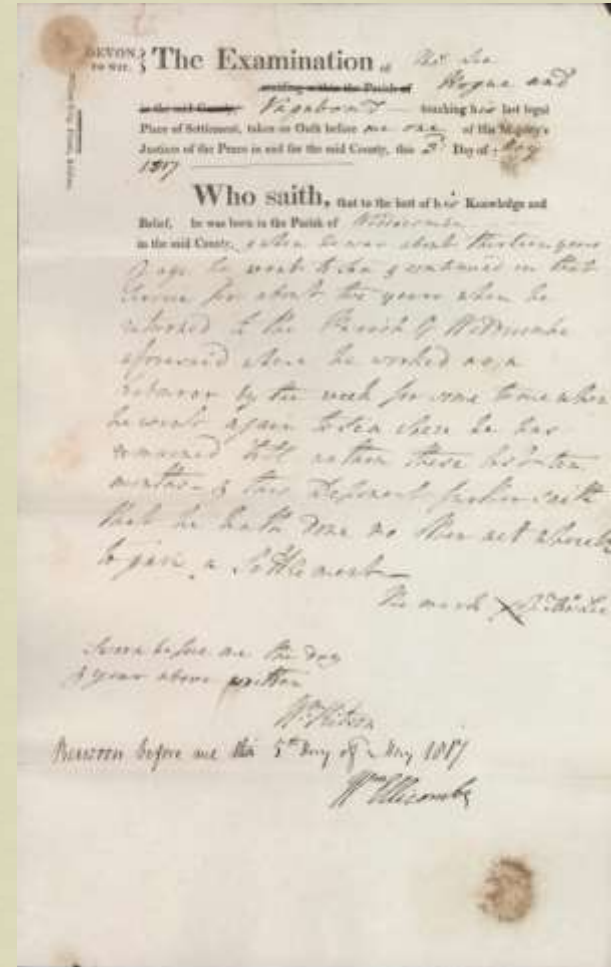 DEVON, } The Examination of Thos Lee
TO WIT. } residing within the Parish of Rogue and
in the said County, Vagabond touching his last legal
Place of Settlement, taken on Oath before me one of His Majesty's
Justices of the Peace in and for the said County, this 3d Day of May
1817
Who saith, that to the best of his Knowledge and
Belief, he was born in the Parish of Widdecombe
in the said County, & when he was about thirteen years
of age he went to Sea & continued in that
Service for about two years when he
returned to the Parish of Widdecombe
aforesaid where he worked as a
labourer by the week for some time when
he went again to Sea where he has
remained till within these last ten
months & this Deponent further saith
that he hath done no other act whereby
to gain a Settlement
The mark X of Thos Lee
Sworn before me the day
& year above written
Wm Kitson
Resworn before me this 5th Day of May 1817
Wm Ellicombe